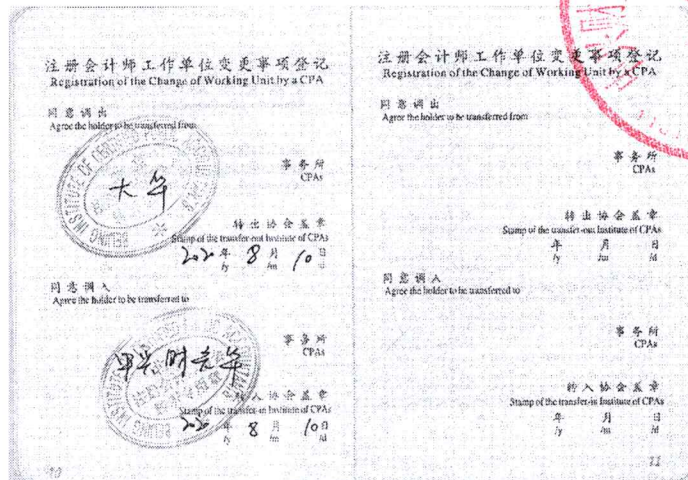 注册会计师工作单位变更事项登记
Registration of the Change of Working Unit by a CPA
同意调出
Agree the holder to be transferred from
大华
事务所
CPAs
转出协会盖章
Stamp of the transfer-out Institute of CPAs
2020年 8月 10日
/y /m /d
同意调入
Agree the holder to be transferred to
事务所
CPAs
转入协会盖章
Stamp of the transfer-in Institute of CPAs
2020年 8月 10日
/y /m /d
10
注册会计师工作单位变更事项登记
Registration of the Change of Working Unit by a CPA
同意调出
Agree the holder to be transferred from
事务所
CPAs
转出协会盖章
Stamp of the transfer-out Institute of CPAs
年 月 日
/y /m /d
同意调入
Agree the holder to be transferred to
事务所
CPAs
转入协会盖章
Stamp of the transfer-in Institute of CPAs
年 月 日
/y /m /d
11
BEIJING INSTITUTE OF